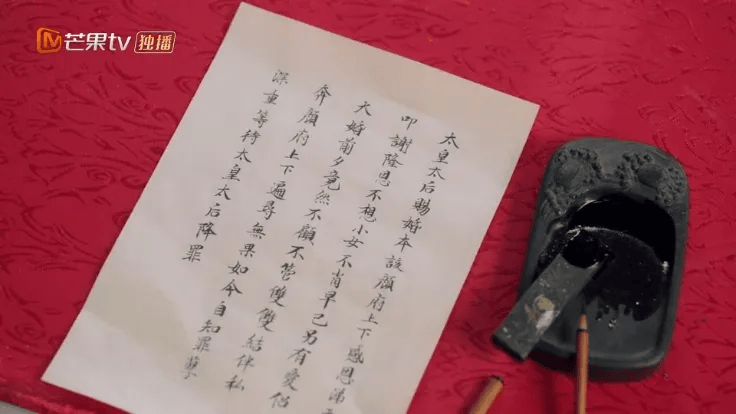 芒果tv 独播
太皇太后賜婚本該顏府上下感恩涕
叩謝隆恩不想小女不肖早已另有愛侶
大婚前夕竟然不顧不管雙雙結伴私
奔顏府上下遍尋無果如今自知罪孽
深重等待太皇太后降罪